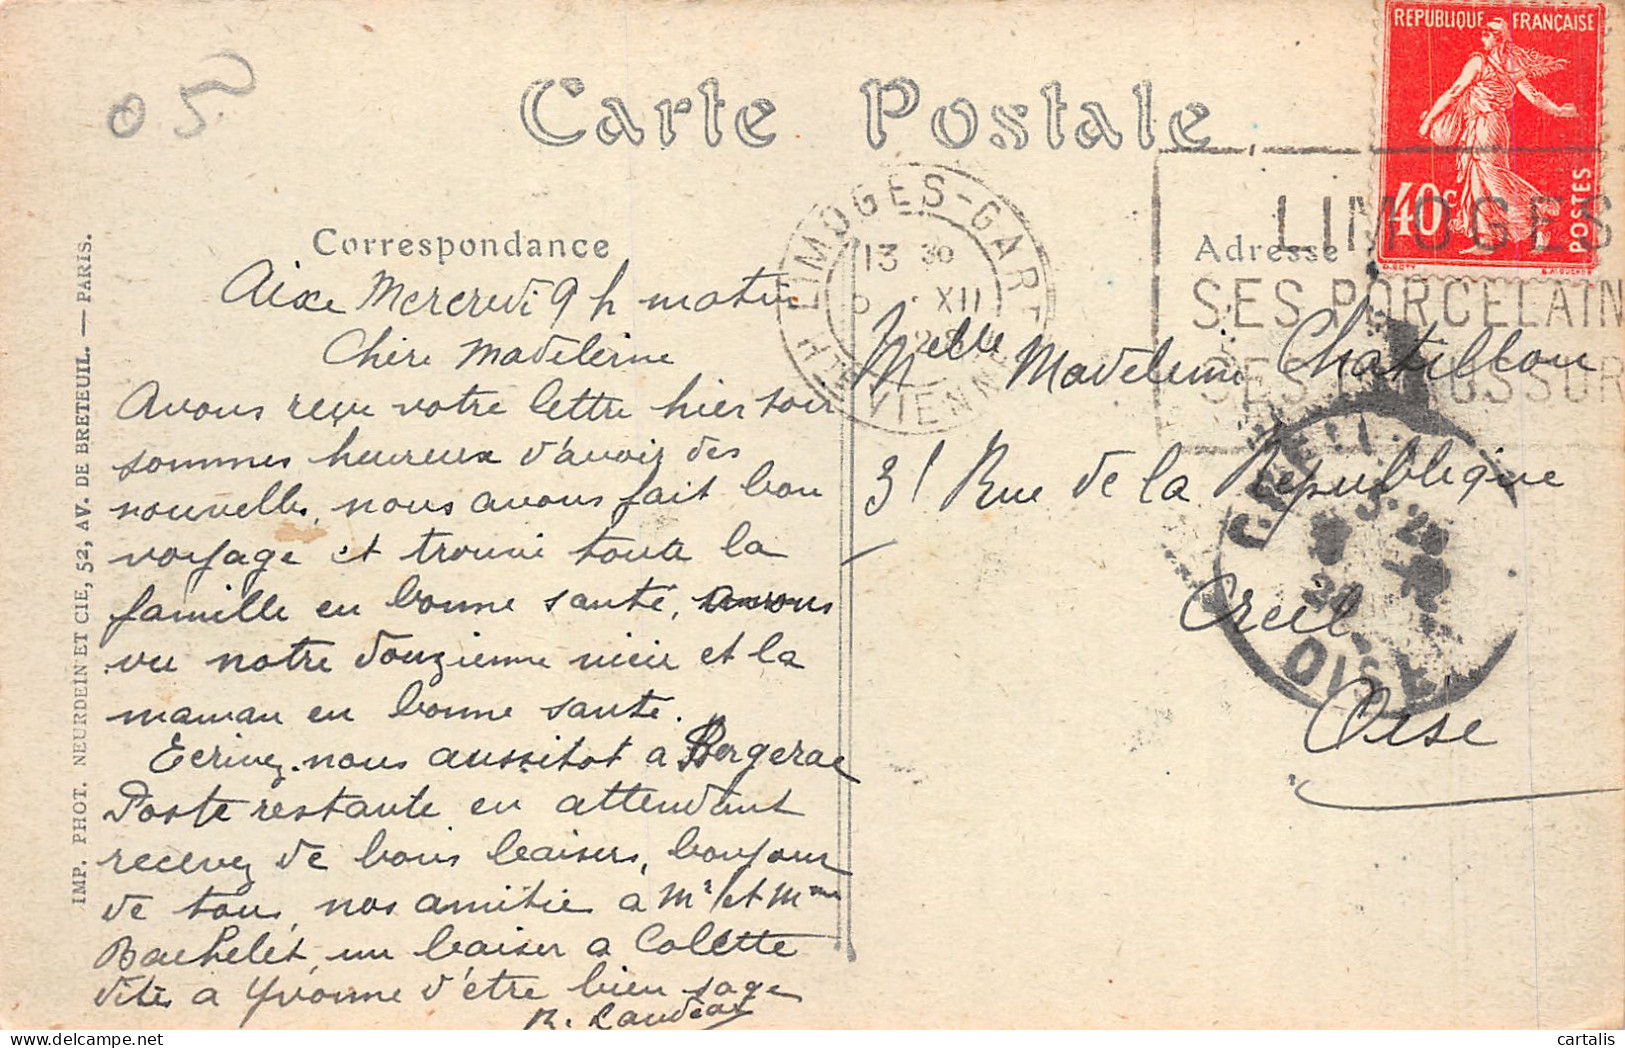 05
Carte Postale
REPUBLIQUE FRANÇAISE
40c
POSTES
LIMOGES-GARE
13 30
XII
HTE VIENNE
LIMOGES
SES PORCELAIN
SES CHAUSSUR
Correspondance
Adresse
Aixe Mercredi 9 h matin
Chère Madeleine
Avons reçu votre lettre hier soir
sommes heureux d'avoir des
nouvelles, nous avons fait bon
voyage et trouvé toute la
famille en bonne santé, avons
vu notre douzième nièce et la
maman en bonne santé.
Ecrivez-nous aussitot a Bergerac
Poste restante en attendant
recevez de bons baisers, bonjour
de tous, nos amitiés à Mr et Mme
Bachelet, un baiser a Colette
dites a Yvonne d'être bien sage
Melle Madeleine Chatillon
31 Rue de la République
Creil
Oise
CREIL
OISE
IMP. PHOT. NEURDEIN ET CIE, 52, AV. DE BRETEUIL. — PARIS.
cartalis